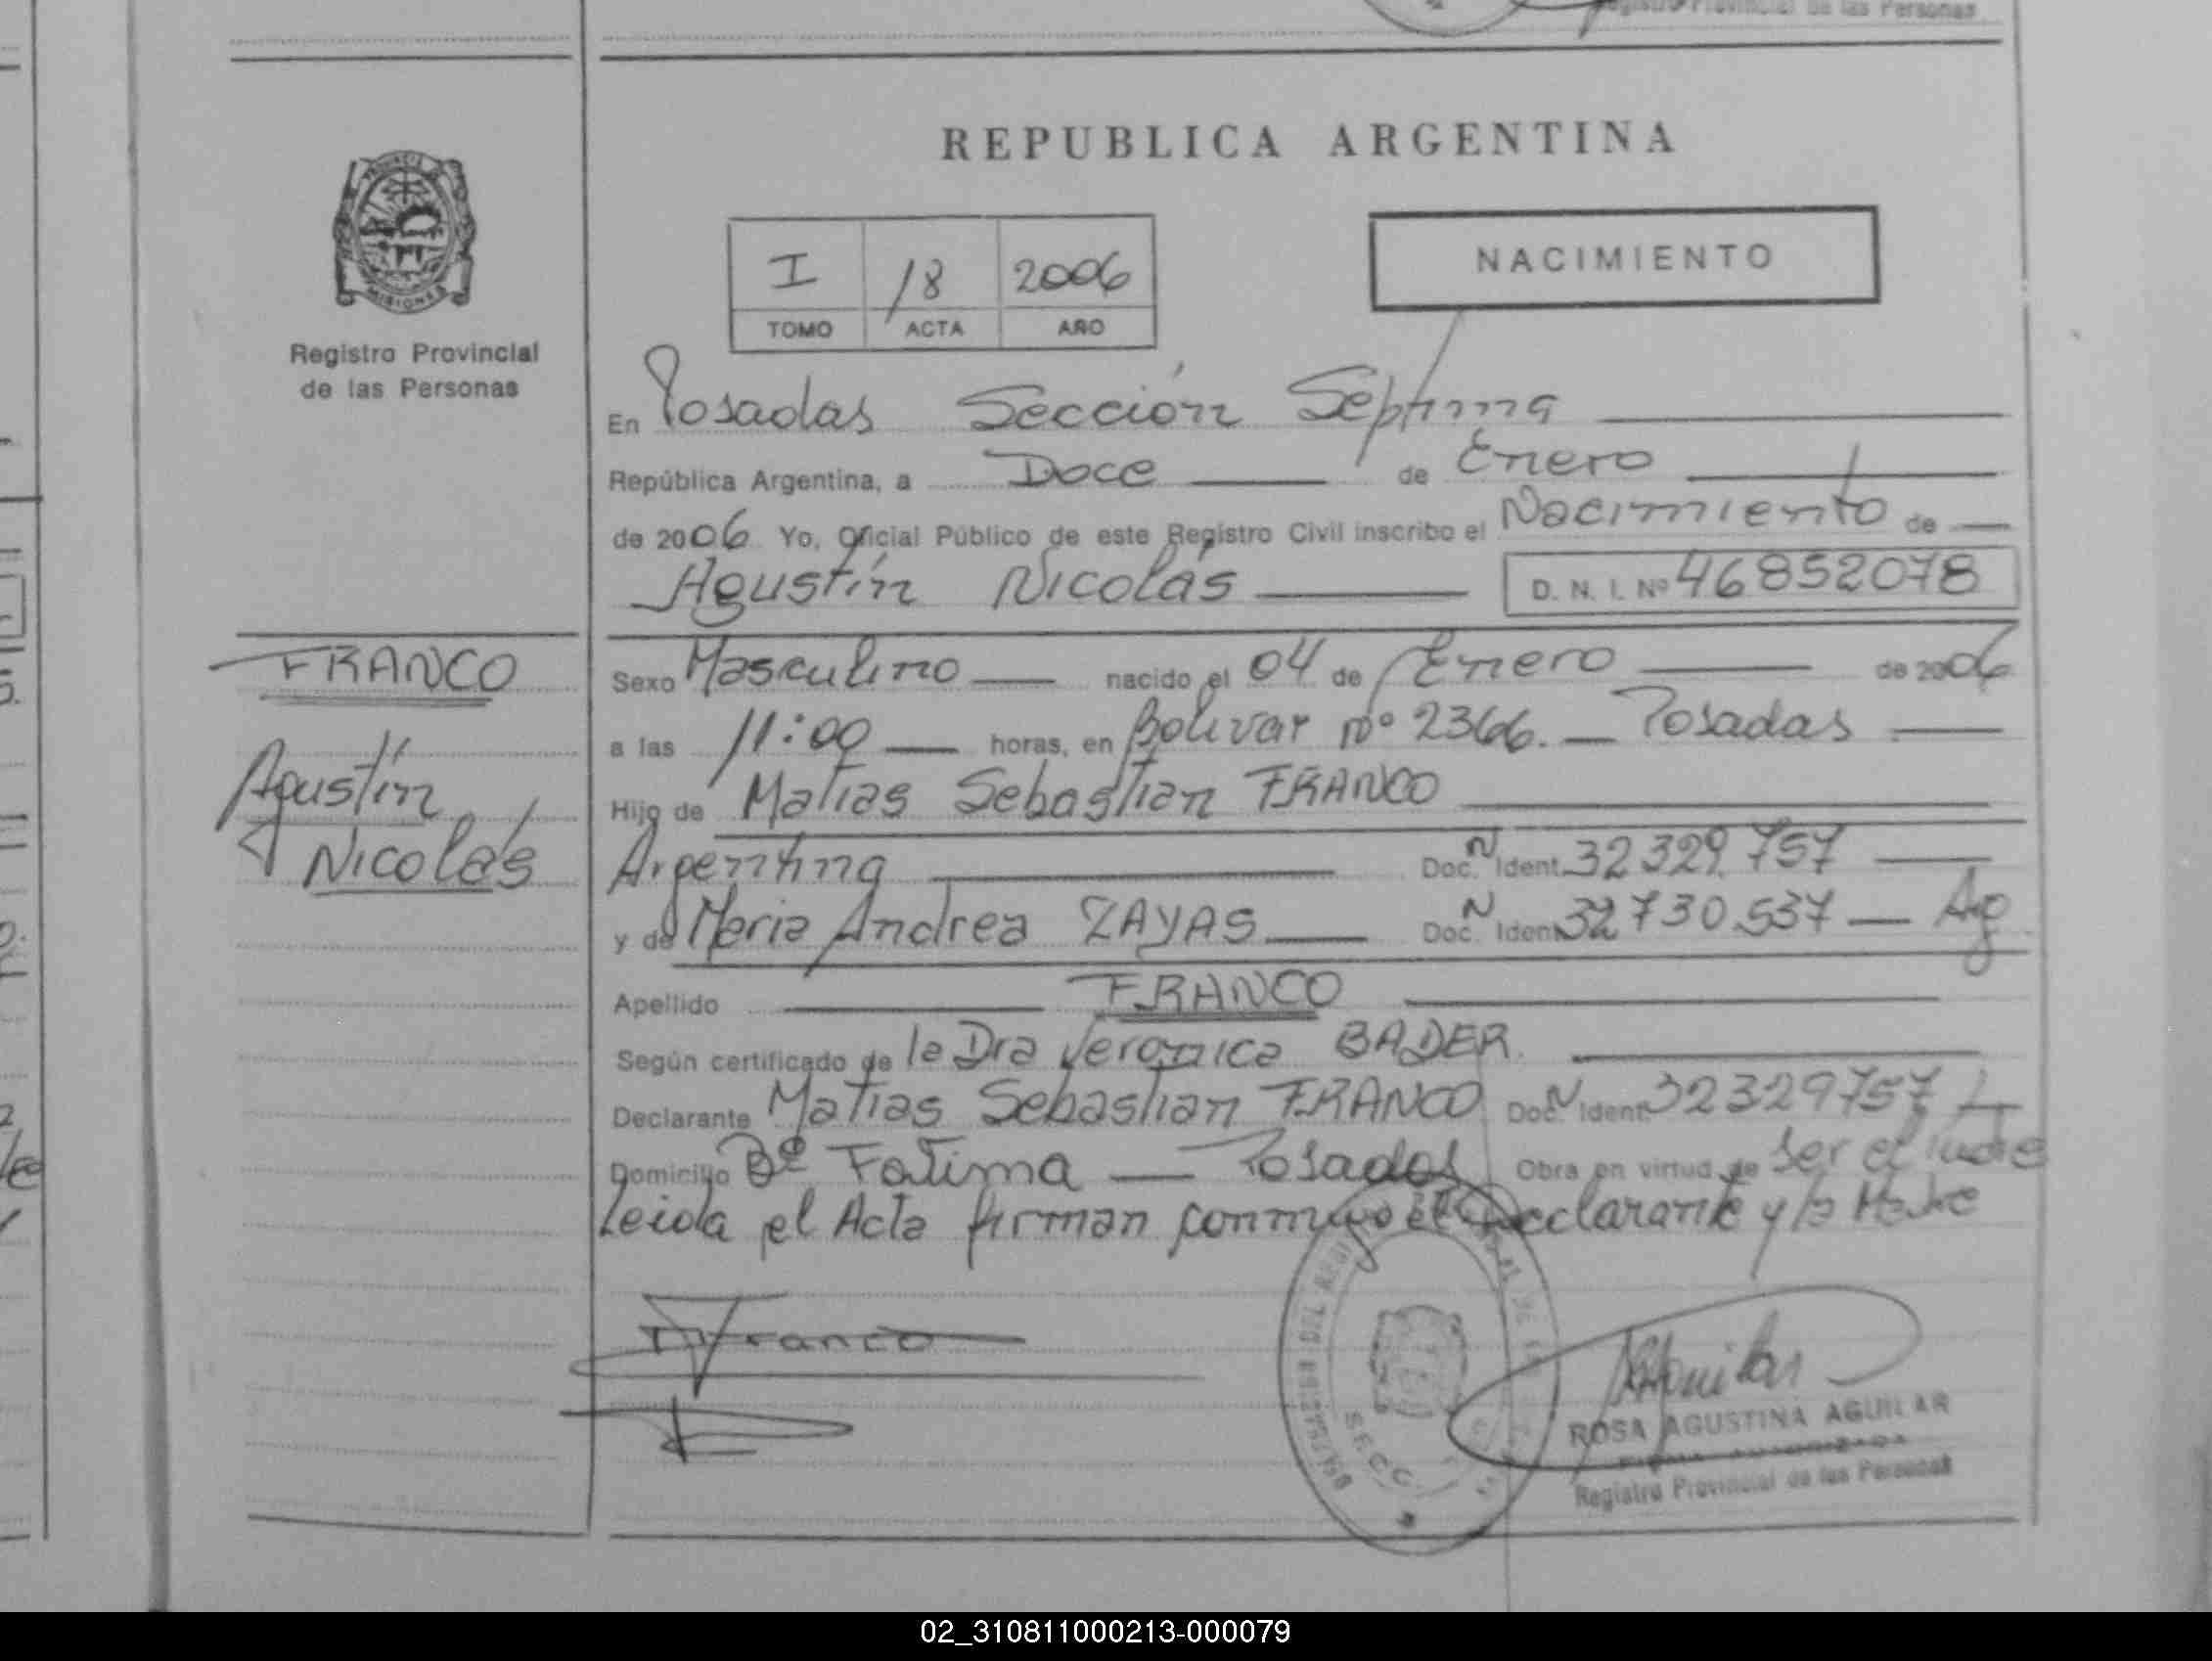 Registro Provincial de las Personas
REPUBLICA ARGENTINA
PROVINCIA DE
MISIONES
Registro Provincial
de las Personas
I 18 2006
TOMO ACTA AÑO
NACIMIENTO
En Posadas Sección Séptima
República Argentina, a Doce de Enero
de 2006 Yo, Oficial Público de este Registro Civil inscribo el Nacimiento de
Agustín Nicolás D. N. I. Nº 46852078
FRANCO
Agustín
Nicolás
Sexo Masculino nacido el 04 de Enero de 2006
a las 11:00 horas, en Bolivar nº 2366. Posadas
Hijo de Matias Sebastian FRANCO
Argentina Doc. N Ident. 32329.757
y de Maria Andrea ZAYAS Doc. N Ident. 32730.537 Arg
Apellido FRANCO
Según certificado de la Dra Veronica BADER.
Declarante Matias Sebastian FRANCO Doc. N Ident. 32329757
Domicilio Bº Fatima Posadas Obra en virtud de ser el Padre
Leida el Acta firman conmigo el Declarante y la Madre
Franco
Aguilar
ROSA AGUSTINA AGUILAR
FIRMA AUTORIZADA
Registro Provincial de las Personas
02_310811000213-000079